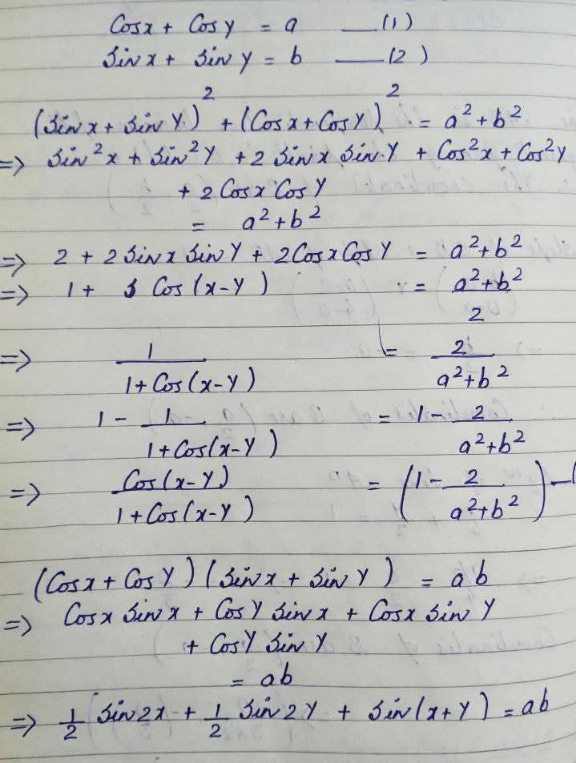 Cosx + Cosy = a —(1)
Sinx + Siny = b —(2)
(Sinx + SinY)² + (Cosx + CosY)² = a²+b²
=> Sin²x + Sin²Y + 2 Sinx SinY + Cos²x + Cos²Y
+ 2 Cosx CosY
= a²+b²
=> 2 + 2 Sinx SinY + 2 Cosx CosY = a²+b²
=> 1 + Cos(x-Y) = a²+b² / 2
=> 1 / 1+Cos(x-Y) = 2 / a²+b²
=> 1 - 1 / 1+Cos(x-Y) = 1 - 2 / a²+b²
=> Cos(x-Y) / 1+Cos(x-Y) = (1 - 2 / a²+b²) —(
(Cosx + CosY) (Sinx + SinY) = ab
=> Cosx Sinx + CosY Sinx + Cosx SinY
+ CosY SinY
= ab
=> 1/2 Sin2x + 1/2 Sin2Y + Sin(x+Y) = ab